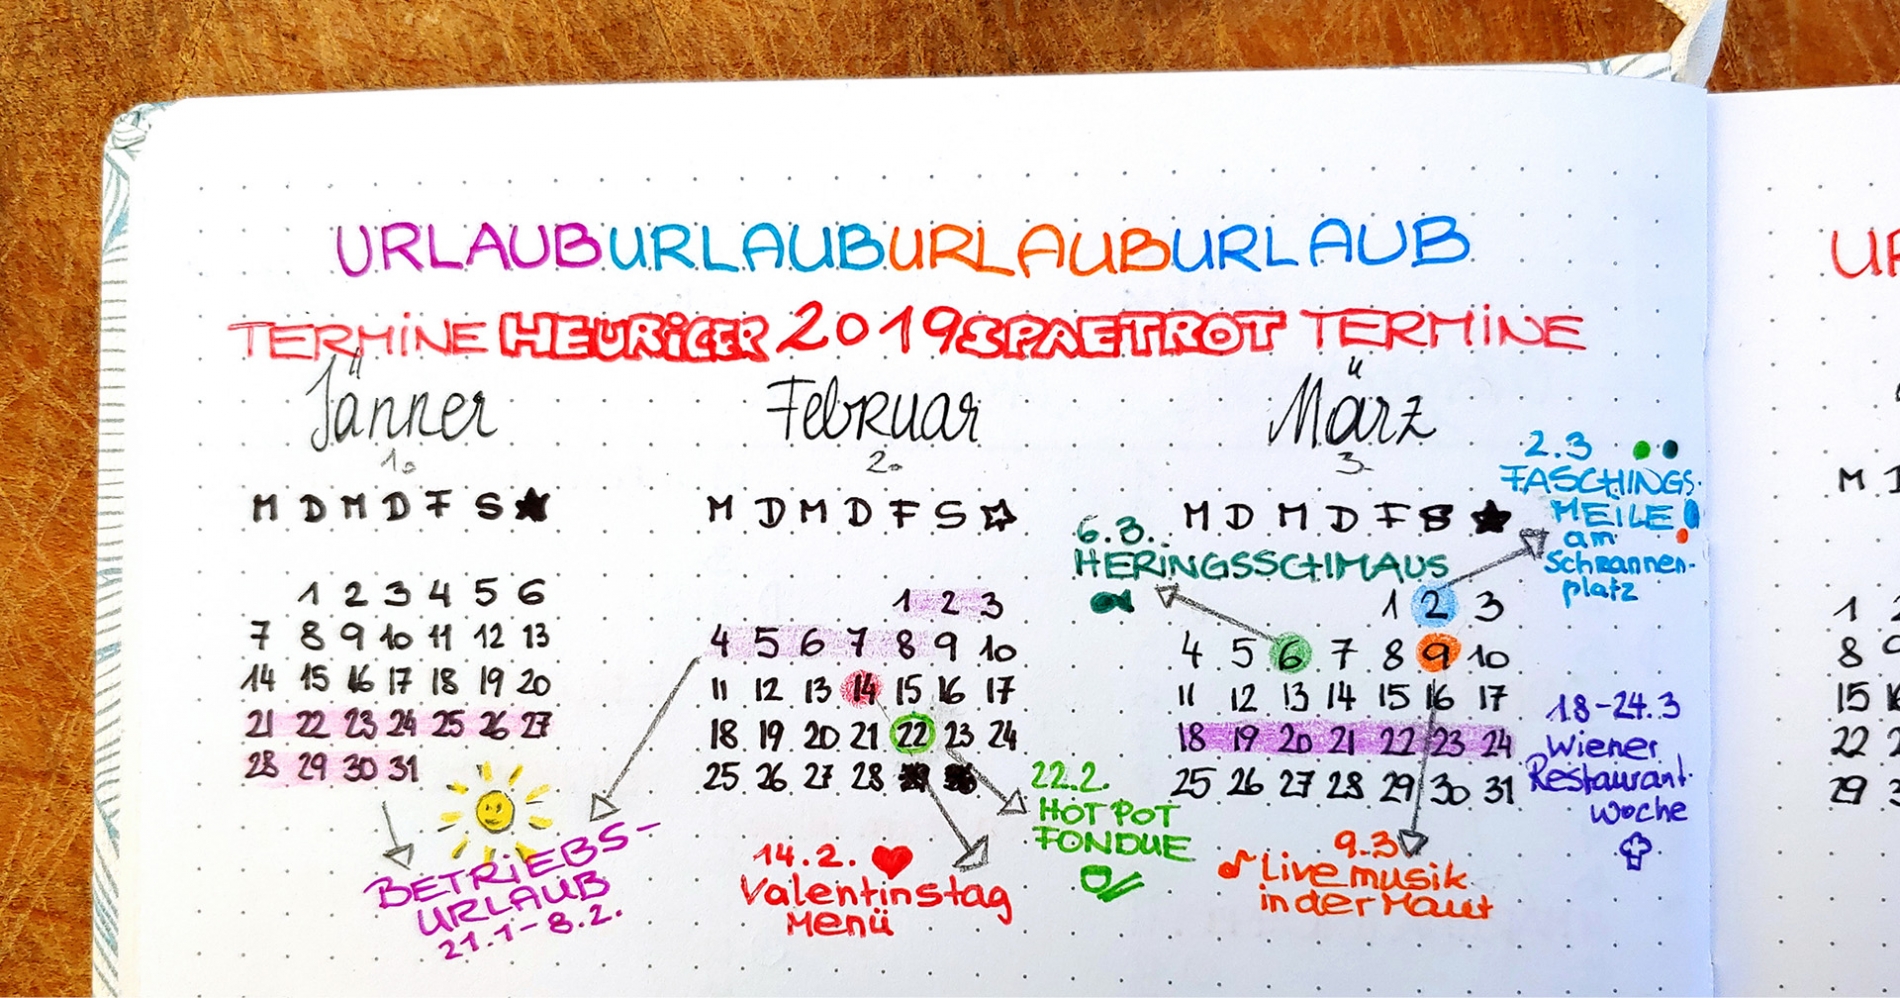 URLAUBURLAUBURLAUBURLAUB
TERMINE HEURIGER 2019 SPAETROT TERMINE
Jänner
1.
M D M D F S
1 2 3 4 5 6
7 8 9 10 11 12 13
14 15 16 17 18 19 20
21 22 23 24 25 26 27
28 29 30 31
BETRIEBS-
URLAUB
21.1-8.2.
Februar
2.
M D M D F S
1 2 3
4 5 6 7 8 9 10
11 12 13 14 15 16 17
18 19 20 21 22 23 24
25 26 27 28
14.2.
Valentinstag
Menü
22.2.
HOT POT
FONDUE
März
3.
M D M D F S
1 2 3
4 5 6 7 8 9 10
11 12 13 14 15 16 17
18 19 20 21 22 23 24
25 26 27 28 29 30 31
6.3.
HERINGSSCHMAUS
2.3
FASCHINGS-
MEILE
am
Schrannen-
platz
18-24.3
Wiener
Restaurant
woche
9.3
Live musik
in der Maut
UR
M
1
8
15
22
29